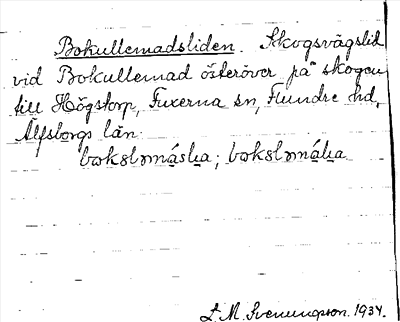 Bokullemadsliden. Skogsvägslid
vid Bokullemad österöver på skogen
till Högstorp, Fuxerna sn, Flundre hd,
Älfsborgs län.
L. M. Svenungson. 1934.